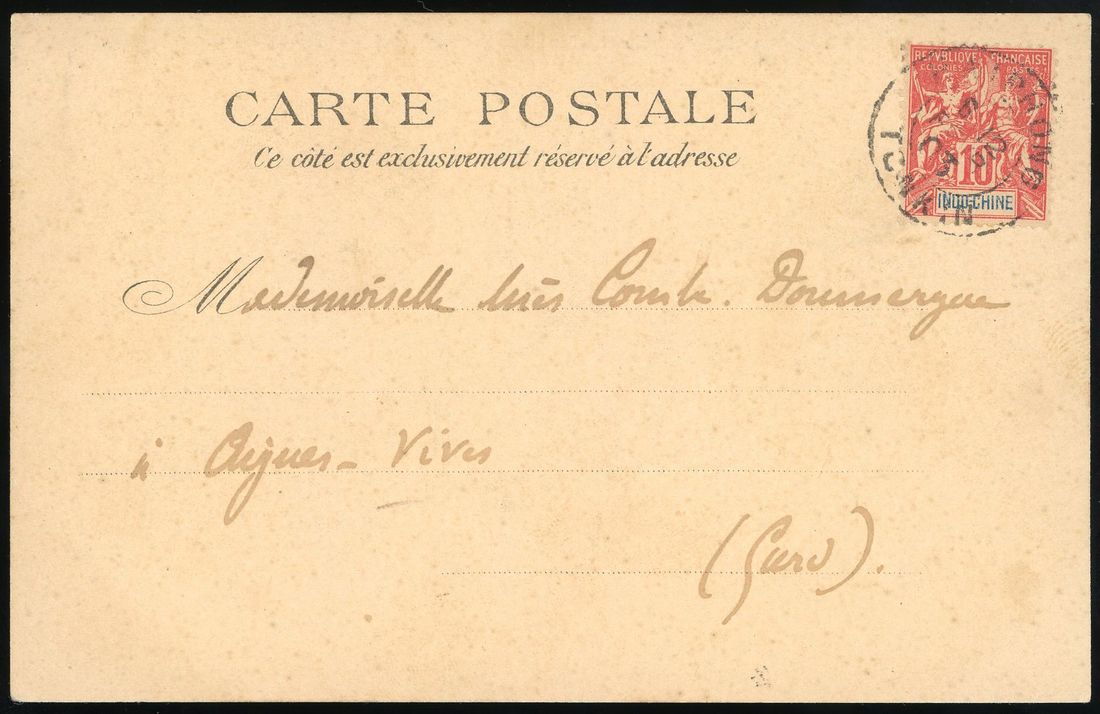 CARTE POSTALE
Ce côté est exclusivement réservé à l'adresse
REPVBLIQVE FRANÇAISE
COLONIES POSTES
10
INDO-CHINE
TONKIN
Mademoiselle Inès Comte. Doumergue
à Aigues-Vives
(Gard).